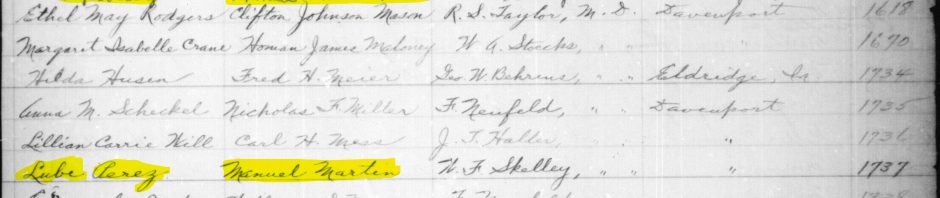 Ethel May Rodgers Clifton Johnson Mason R. S. Taylor, M. D. Davenport 1618
Margaret Isabelle Crane Homan James Mahoney W. A. Stoecks, " " " 1690
Hilda Husen Fred H. Meier Geo. W. Behrens, " " Eldridge, Ia 1734
Anna M. Scheckel Nicholas F. Miller F. Neufeld, " " Davenport 1735
Lillian Carrie Will Carl H. Mess J. T. Haller, " " " 1736
Lube Perez Manuel Martin W. F. Skelley, " " " 1737